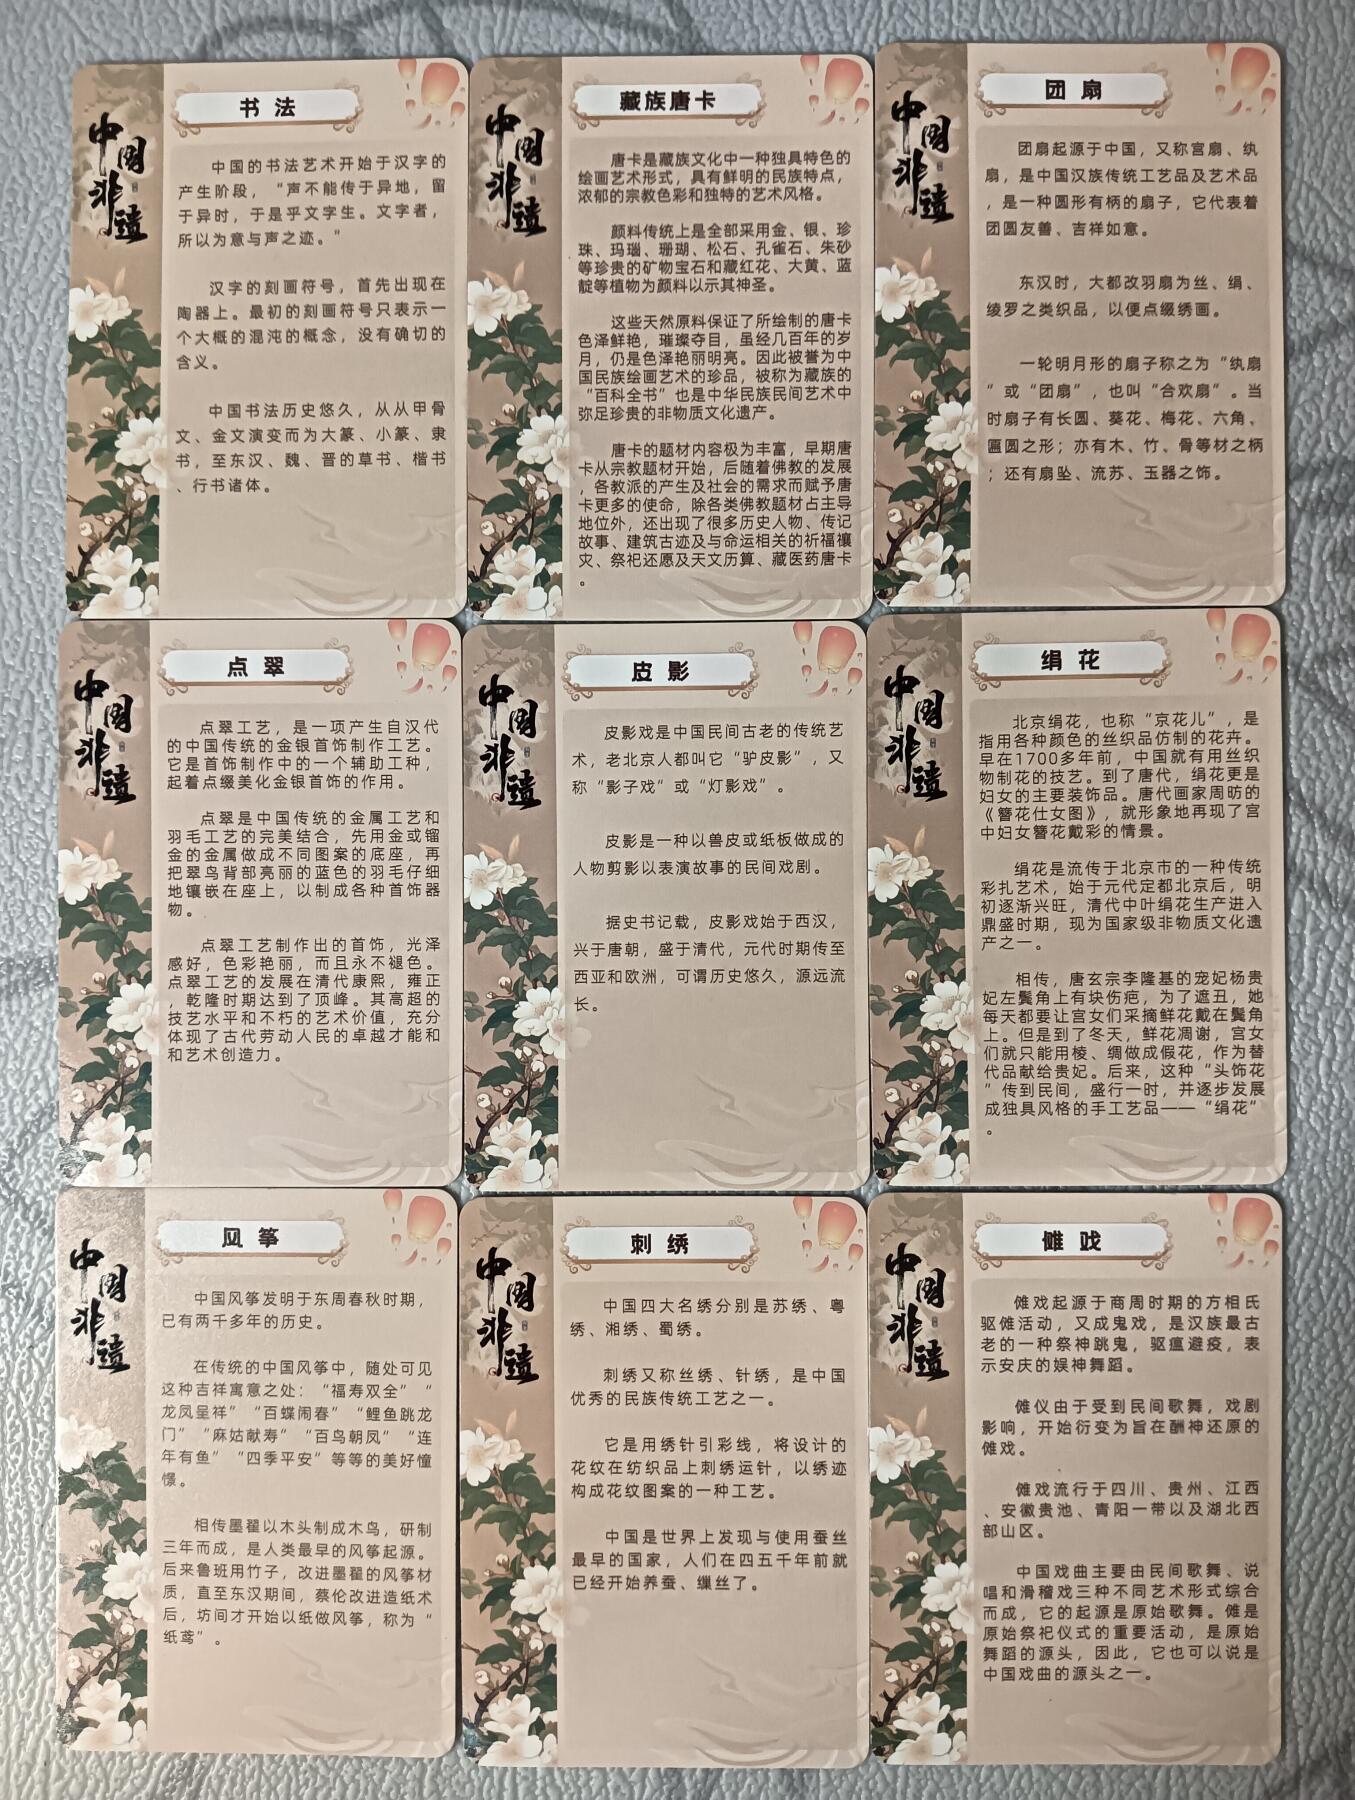 中国非遗
书法
中国的书法艺术开始于汉字的
产生阶段，“声不能传于异地，留
于异时，于是乎文字生。文字者，
所以为意与声之迹。”
汉字的刻画符号，首先出现在
陶器上。最初的刻画符号只表示一
个大概的混沌的概念，没有确切的
含义。
中国书法历史悠久，从从甲骨
文、金文演变而为大篆、小篆、隶
书，至东汉、魏、晋的草书、楷书
、行书诸体。
中国非遗
藏族唐卡
唐卡是藏族文化中一种独具特色的
绘画艺术形式，具有鲜明的民族特点，
浓郁的宗教色彩和独特的艺术风格。
颜料传统上是全部采用金、银、珍
珠、玛瑙、珊瑚、松石、孔雀石、朱砂
等珍贵的矿物宝石和藏红花、大黄、蓝
靛等植物为颜料以示其神圣。
这些天然原料保证了所绘制的唐卡
色泽鲜艳，璀璨夺目，虽经几百年的岁
月，仍是色泽艳丽明亮。因此被誉为中
国民族绘画艺术的珍品，被称为藏族的
“百科全书”也是中华民族民间艺术中
弥足珍贵的非物质文化遗产。
唐卡的题材内容极为丰富，早期唐
卡从宗教题材开始，后随着佛教的发展
，各教派的产生及社会的需求而赋予唐
卡更多的使命，除各类佛教题材占主导
地位外，还出现了很多历史人物、传记
故事、建筑古迹及与命运相关的祈福禳
灾、祭祀还愿及天文历算、藏医药唐卡
。
中国非遗
团扇
团扇起源于中国，又称宫扇、纨
扇，是中国汉族传统工艺品及艺术品
，是一种圆形有柄的扇子，它代表着
团圆友善、吉祥如意。
东汉时，大都改羽扇为丝、绢、
绫罗之类织品，以便点缀绣画。
一轮明月形的扇子称之为“纨扇
”或“团扇”，也叫“合欢扇”。当
时扇子有长圆、葵花、梅花、六角、
匾圆之形；亦有木、竹、骨等材之柄
；还有扇坠、流苏、玉器之饰。
中国非遗
点翠
点翠工艺，是一项产生自汉代
的中国传统的金银首饰制作工艺。
它是首饰制作中的一个辅助工种，
起着点缀美化金银首饰的作用。
点翠是中国传统的金属工艺和
羽毛工艺的完美结合，先用金或镏
金的金属做成不同图案的底座，再
把翠鸟背部亮丽的蓝色的羽毛仔细
地镶嵌在座上，以制成各种首饰器
物。
点翠工艺制作出的首饰，光泽
感好，色彩艳丽，而且永不褪色。
点翠工艺的发展在清代康熙，雍正
，乾隆时期达到了顶峰。其高超的
技艺水平和不朽的艺术价值，充分
体现了古代劳动人民的卓越才能和
和艺术创造力。
中国非遗
皮影
皮影戏是中国民间古老的传统艺
术，老北京人都叫它“驴皮影”，又
称“影子戏”或“灯影戏”。
皮影是一种以兽皮或纸板做成的
人物剪影以表演故事的民间戏剧。
据史书记载，皮影戏始于西汉，
兴于唐朝，盛于清代，元代时期传至
西亚和欧洲，可谓历史悠久，源远流
长。
中国非遗
绢花
北京绢花，也称“京花儿”，是
指用各种颜色的丝织品仿制的花卉。
早在1700多年前，中国就有用丝织
物制花的技艺。到了唐代，绢花更是
妇女的主要装饰品。唐代画家周昉的
《簪花仕女图》，就形象地再现了宫
中妇女簪花戴彩的情景。
绢花是流传于北京市的一种传统
彩扎艺术，始于元代定都北京后，明
初逐渐兴旺，清代中叶绢花生产进入
鼎盛时期，现为国家级非物质文化遗
产之一。
相传，唐玄宗李隆基的宠妃杨贵
妃左鬓角上有块伤疤，为了遮丑，她
每天都要让宫女们采摘鲜花戴在鬓角
上。但是到了冬天，鲜花凋谢，宫女
们就只能用棱、绸做成假花，作为替
代品献给贵妃。后来，这种“头饰花
”传到民间，盛行一时，并逐步发展
成独具风格的手工艺品——“绢花”
。
中国非遗
风筝
中国风筝发明于东周春秋时期，
已有两千多年的历史。
在传统的中国风筝中，随处可见
这种吉祥寓意之处：“福寿双全”“
龙凤呈祥”“百蝶闹春”“鲤鱼跳龙
门”“麻姑献寿”“百鸟朝凤”“连
年有鱼”“四季平安”等等的美好憧
憬。
相传墨翟以木头制成木鸟，研制
三年而成，是人类最早的风筝起源。
后来鲁班用竹子，改进墨翟的风筝材
质，直至东汉期间，蔡伦改进造纸术
后，坊间才开始以纸做风筝，称为“
纸鸢”。
中国非遗
刺绣
中国四大名绣分别是苏绣、粤
绣、湘绣、蜀绣。
刺绣又称丝绣、针绣，是中国
优秀的民族传统工艺之一。
它是用绣针引彩线，将设计的
花纹在纺织品上刺绣运针，以绣迹
构成花纹图案的一种工艺。
中国是世界上发现与使用蚕丝
最早的国家，人们在四五千年前就
已经开始养蚕、缫丝了。
中国非遗
傩戏
傩戏起源于商周时期的方相氏
驱傩活动，又成鬼戏，是汉族最古
老的一种祭神跳鬼，驱瘟避疫，表
示安庆的娱神舞蹈。
傩仪由于受到民间歌舞，戏剧
影响，开始衍变为旨在酬神还原的
傩戏。
傩戏流行于四川、贵州、江西
、安徽贵池、青阳一带以及湖北西
部山区。
中国戏曲主要由民间歌舞、说
唱和滑稽戏三种不同艺术形式综合
而成，它的起源是原始歌舞。傩是
原始祭祀仪式的重要活动，是原始
舞蹈的源头，因此，它也可以说是
中国戏曲的源头之一。